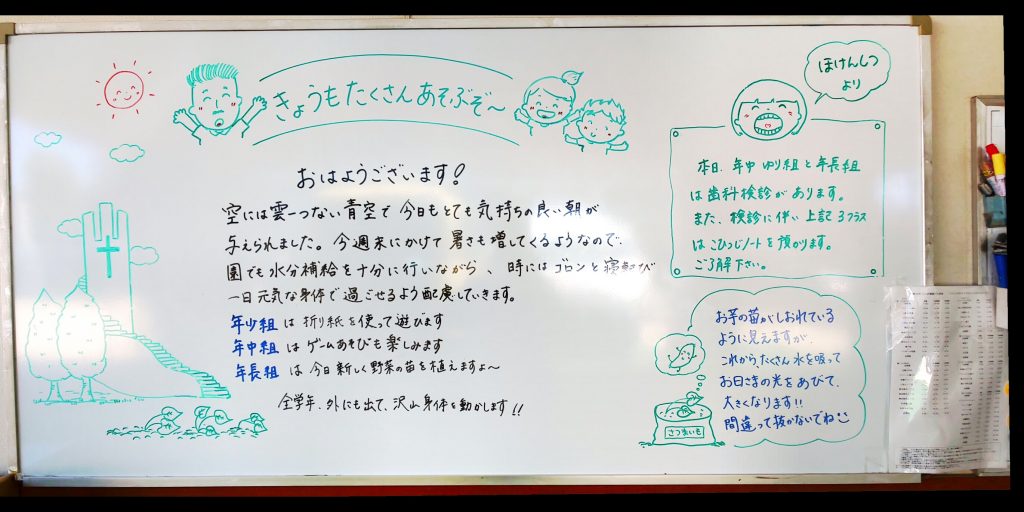 きょうもたくさんあそぶぞ〜
おはようございます！
空には雲一つない青空で今日もとても気持ちの良い朝が
与えられました。今週末にかけて暑さも増してくるようなので、
園でも水分補給を十分に行いながら、時にはゴロンと寝転び
一日元気な身体で過ごせるよう配慮していきます。
年少組は折り紙を使って遊びます
年中組はゲームあそびも楽しみます
年長組は今日新しく野菜の苗を植えますよ〜
全学年、外にも出て、沢山身体を動かします!!
ほけんしつ
より
本日、年中ゆり組と年長組
は歯科検診があります。
また、検診に伴い上記3クラス
はこひつじノートを預かります。
ご了解下さい。
お芋の苗がしおれている
ように見えますが、
これから、たくさん水を吸って
お日さまの光をあびて、
大きくなります!!
間違って抜かないでね
さつまいも